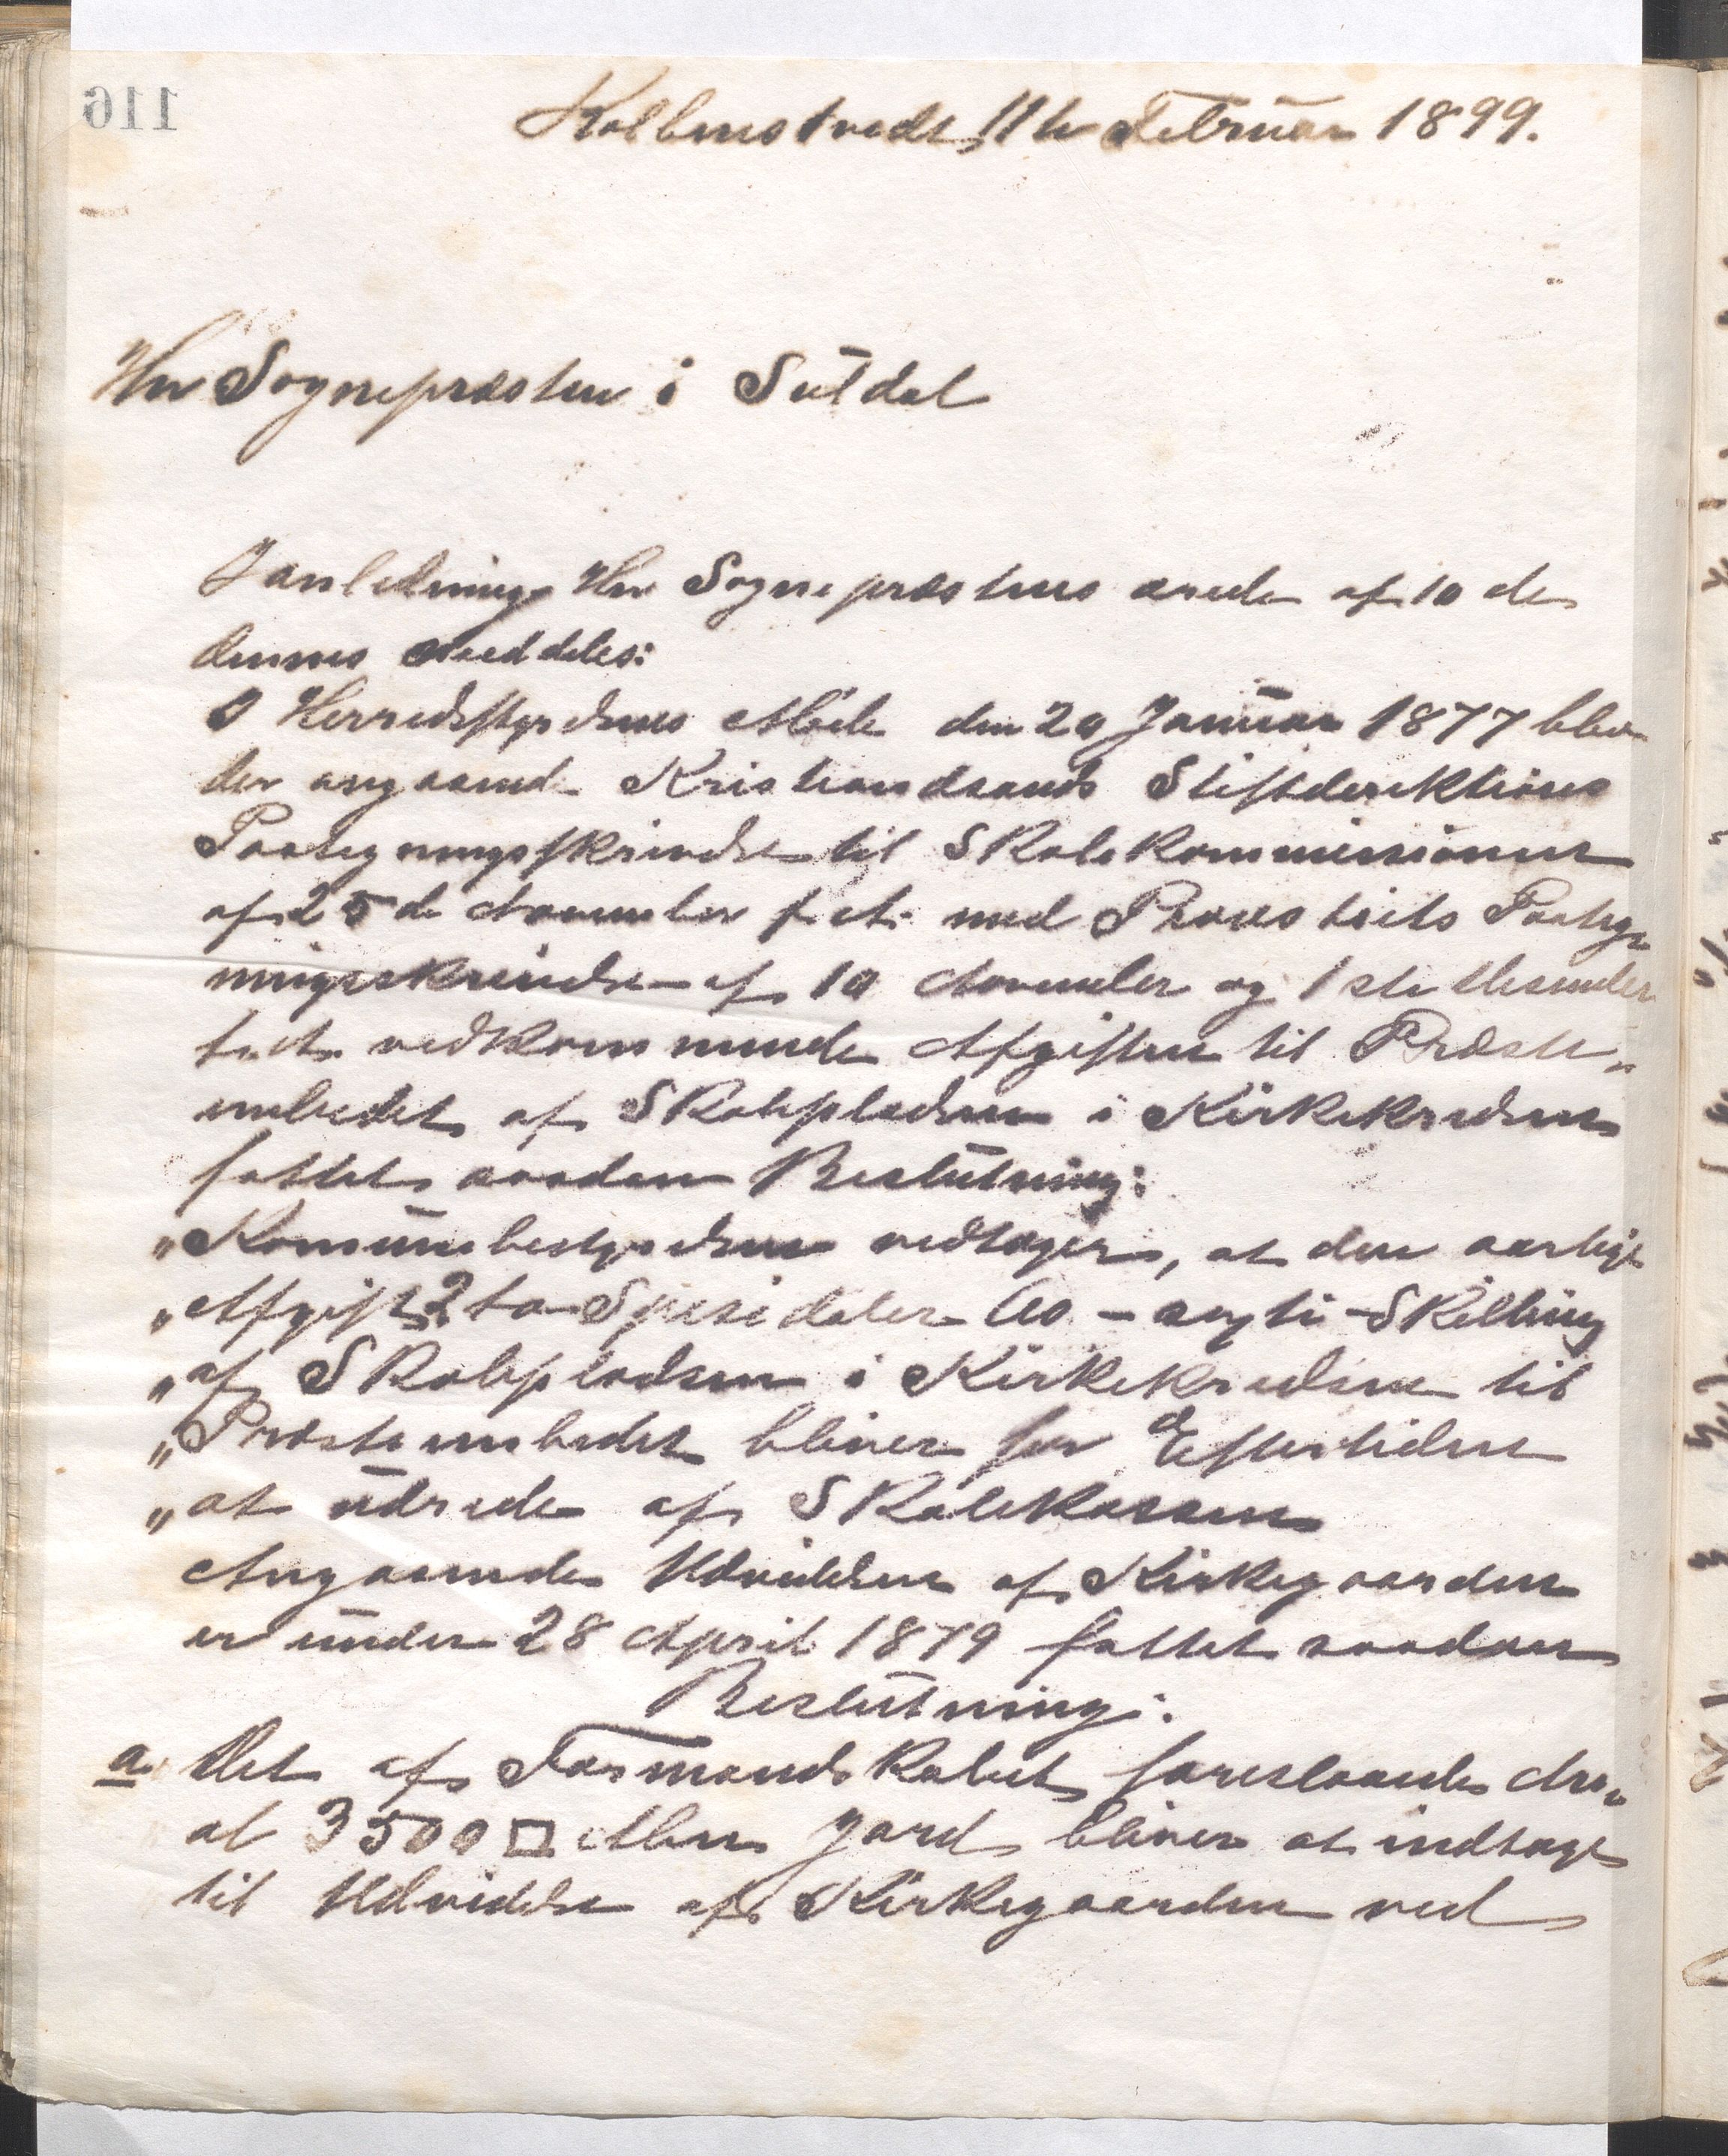 116
Kolbenstvedt, 11te Februar 1899.
Hr Sognepræsten i Suldal
I anledning Hr Sognepræstens ærede af 10 de
dennes meddeles:
I Herredsstyrelsens Møde den 20 Januar 1877 blev
der angaaende Kristiansands Stiftsdirektions
Paategningsskrivelse til Skolekommissionen
af 25de November f. A. med Provstiets Paateg-
ningsskrivelse af 10 November og 1ste Desember
f. A. vedkommende Afgiften til Præste-
embedet af Skolepladsen i Kirkekredsen
fattet saadan Beslutning:
"Komunebestyrelsen vedtager, at den aarlige
"Afgift 2 to Spesidaler 60 - sexti - Skilling
"af Skolepladsen i Kirkekredsen til
"Præsteembedet bliver for Eftertiden
"at udrede af Skolekassen
Angaaende Udvidelsen af Kirkegaarden
er under 28 April 1879 fattet saadan
Beslutning:
a. Det af Formandskabet foreslaaede Are-
al 3500 □ Alen Jord bliver at indtage
til Udvidelse af Kirkegaarden ved